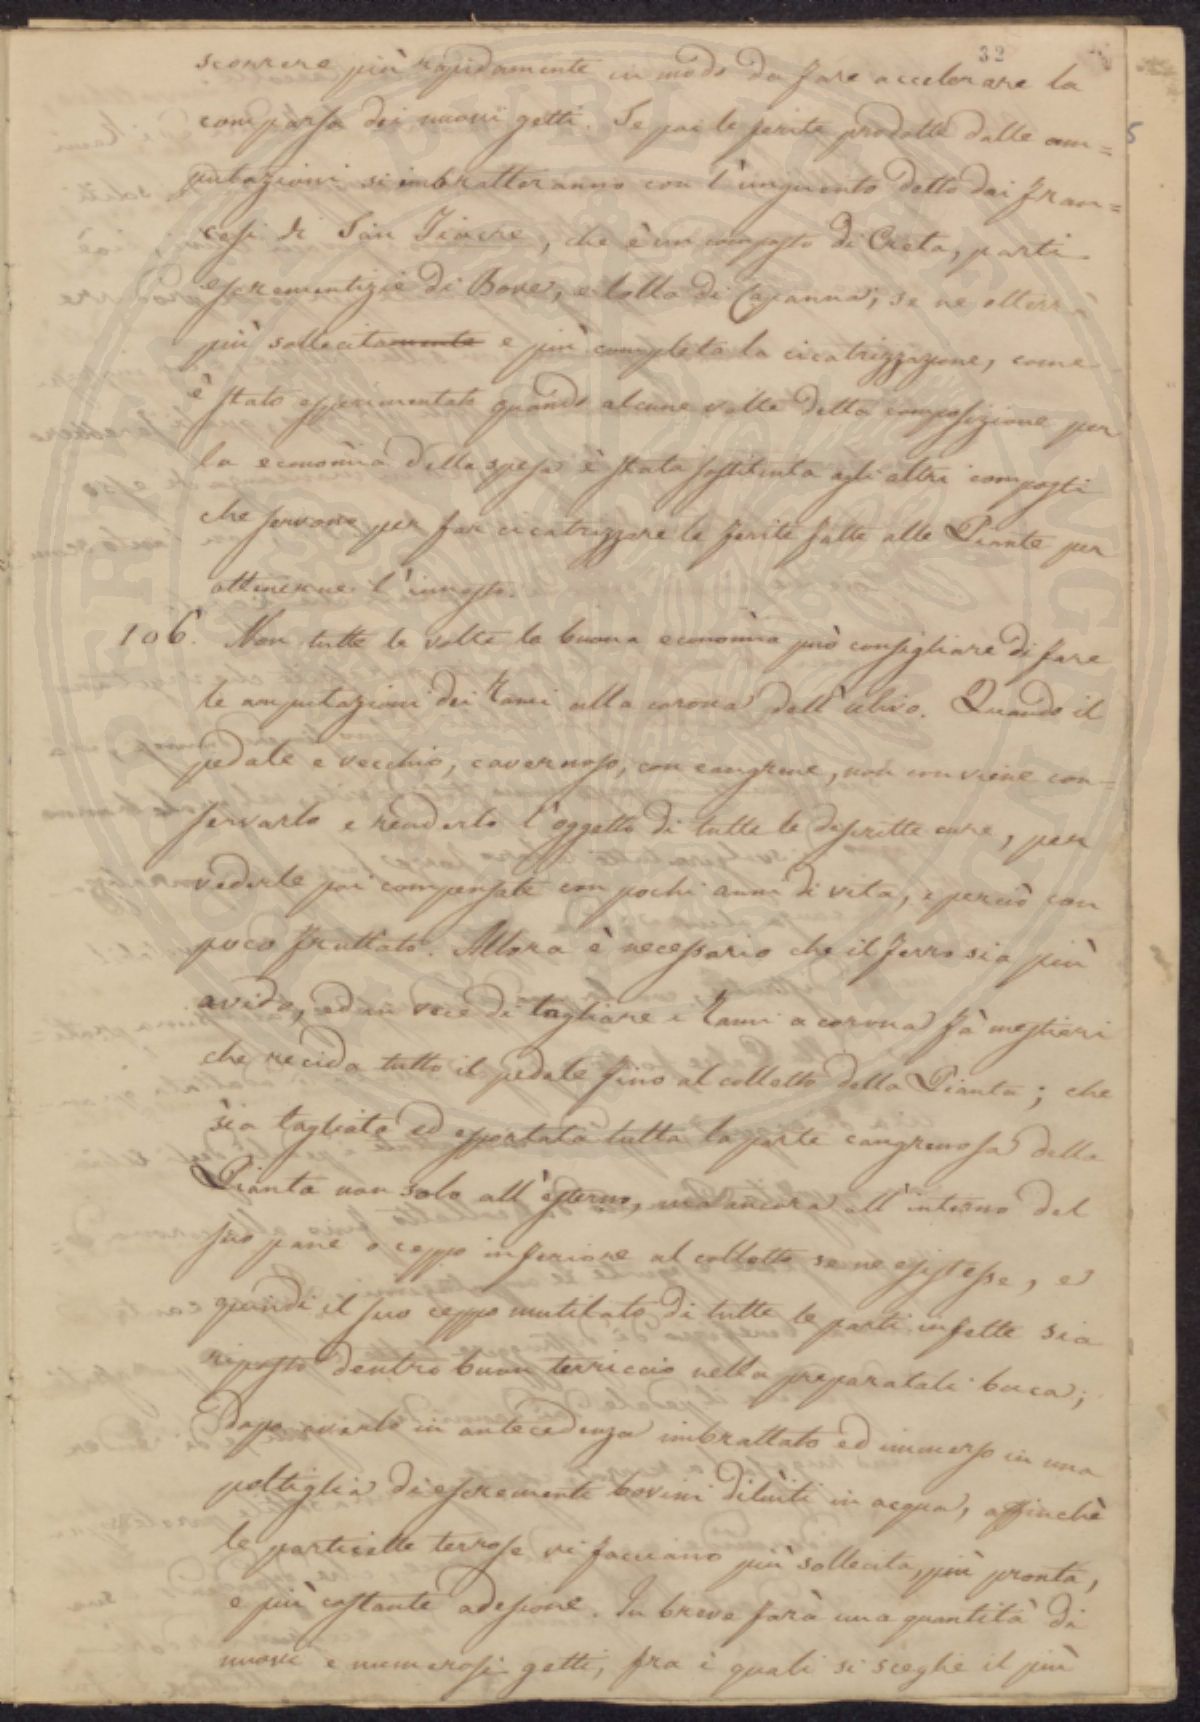 32
scorrere più rapidamente in modo da fare accelerare la
comparsa dei nuovi getti. Se poi le ferite prodotte dalle am=
putazioni si imbratteranno con l'unguento detto dai Fran=
cesi di San Fiacre, che è un composto di Creta, parti
escrementizie di Bove, e lolla di Capanna, se ne otterrà
più sollecitamente e più completa la cicatrizzazione, come
è stato esperimentato quando alcune volte detta composizione per
la economia della spesa è stata sostituita agli altri composti
che servono per far cicatrizzare le ferite fatte alle Piante per
ottenerne l'innesto.
106. Non tutte le volte la buona economia può consigliare di fare
le amputazioni dei Rami alla corona dell'ulivo. Quando il
pedale e vecchio, cavernoso, con cangrene, non conviene con=
servarlo e renderlo l'oggetto di tutte le descritte cure, per
vederle poi compensate con pochi anni di vita, e perciò con
poco fruttato. Allora è necessario che il ferro sia più
avido, ed in vece di tagliare i Rami a corona fà mestieri
che recida tutto il pedale fino al colletto della Pianta; che
sia tagliata ed esportata tutta la parte cangrenosa della
Pianta non solo all'esterno, ma ancora all'interno del
suo pane o ceppo inferiore al colletto se ne esistesse, e
quindi il suo ceppo mutilato di tutte le parti infette sia
riposto dentro buon terriccio nella preparatali buca;
dopo averlo in antecedenza imbrattato ed immerso in una
poltiglia di escremente bovini diluiti in acqua, affinchè
le particelle terrose vi facciano più sollecita, più pronta,
e più costante adesione. In breve farà una quantità di
nuovi e numerosi getti, fra i quali si sceglie il più